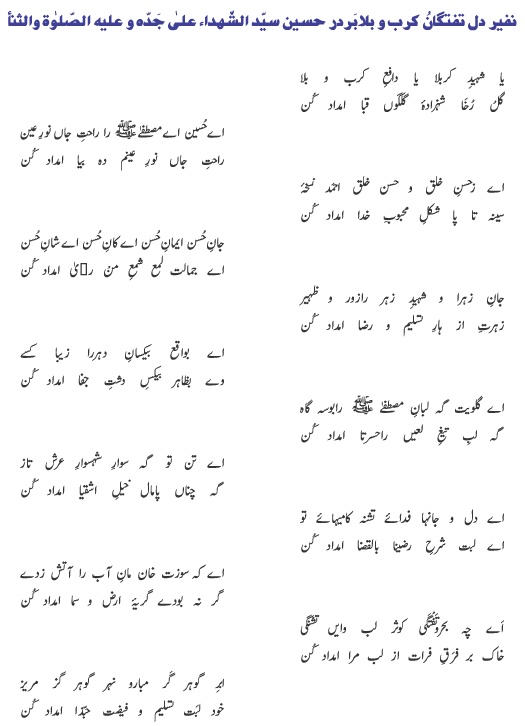 نفیر دل تفتگانُ کرب و بلا بَر در حسین سیّد الشّهداء علیٰ جَدّه و علیه الصّلوٰة والثنأ
یا شہیدِ کربلا یا دافع کرب و بلا
گل رُخَا شہزادۂ گلگوں قبا امداد کُن
اے حُسین اے مصطفےٰ ﷺ را راحتِ جاں نورِ عین
راحتِ جاں نورِ عینم دہ بیا امداد کُن
اے زحسنِ خلق و حسن خلق احمد نسخۂ
سینہ تا پا شکلِ محبوبِ خدا امداد کُن
جانِ حُسن ایمانِ حُسن اے کانِ حُسن اے شانِ حُسن
اے جمالت لمع شمع من امداد کُن
جانِ زہرا و شہیدِ زہر رازور و ظہیر
زہرتِ از ہارِ تسلیم و رضا امداد کُن
اے بواقع بیکسانِ دہررا زیبا کسے
وے بظاہر بیکسِ دشتِ جفا امداد کُن
اے گلویت گہ لبانِ مصطفےٰ ﷺ رابوسہ گاہ
گہ لبِ تیغِ لعیں راحسرتا امداد کُن
اے تن تو گہ سوارِ شہسوارِ عرش تاز
گہ چناں پامال خیلِ اشقیا امداد کُن
اے دل و جانہا فدائے تشنہ کامیہائے تو
اے لبت شرحِ رضینا بالقضا امداد کُن
اے کہ سوزت خان مانِ آب را آتش زدے
گر نہ بودے گریۂ ارض و سما امداد کُن
اَے چہ بحروتُفتگی کوثر لب وایں تشنگی
خاک بر فَرقِ فرات از لب مرا امداد کُن
ابرِ گوہر گَر مبارو نہر گوہر گز مریز
خود لَبت تسلیم و فیضت حبّذا امداد کُن